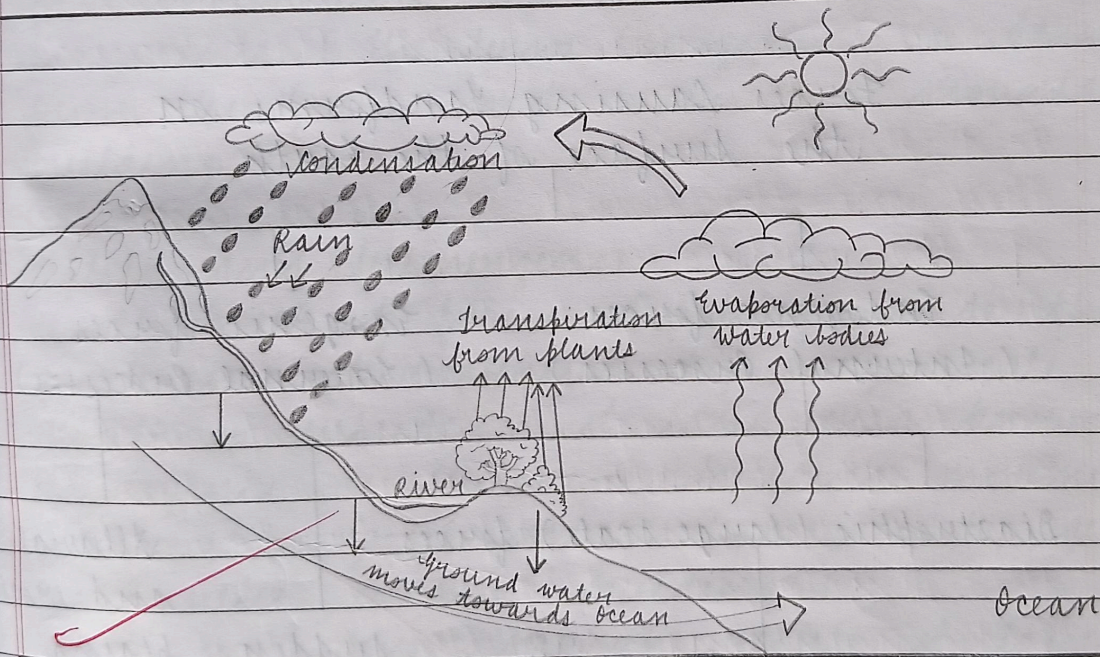 Condensation
Rain
Transpiration
from plants
Evaporation from
water bodies
River
Ground water
moves towards ocean
Ocean